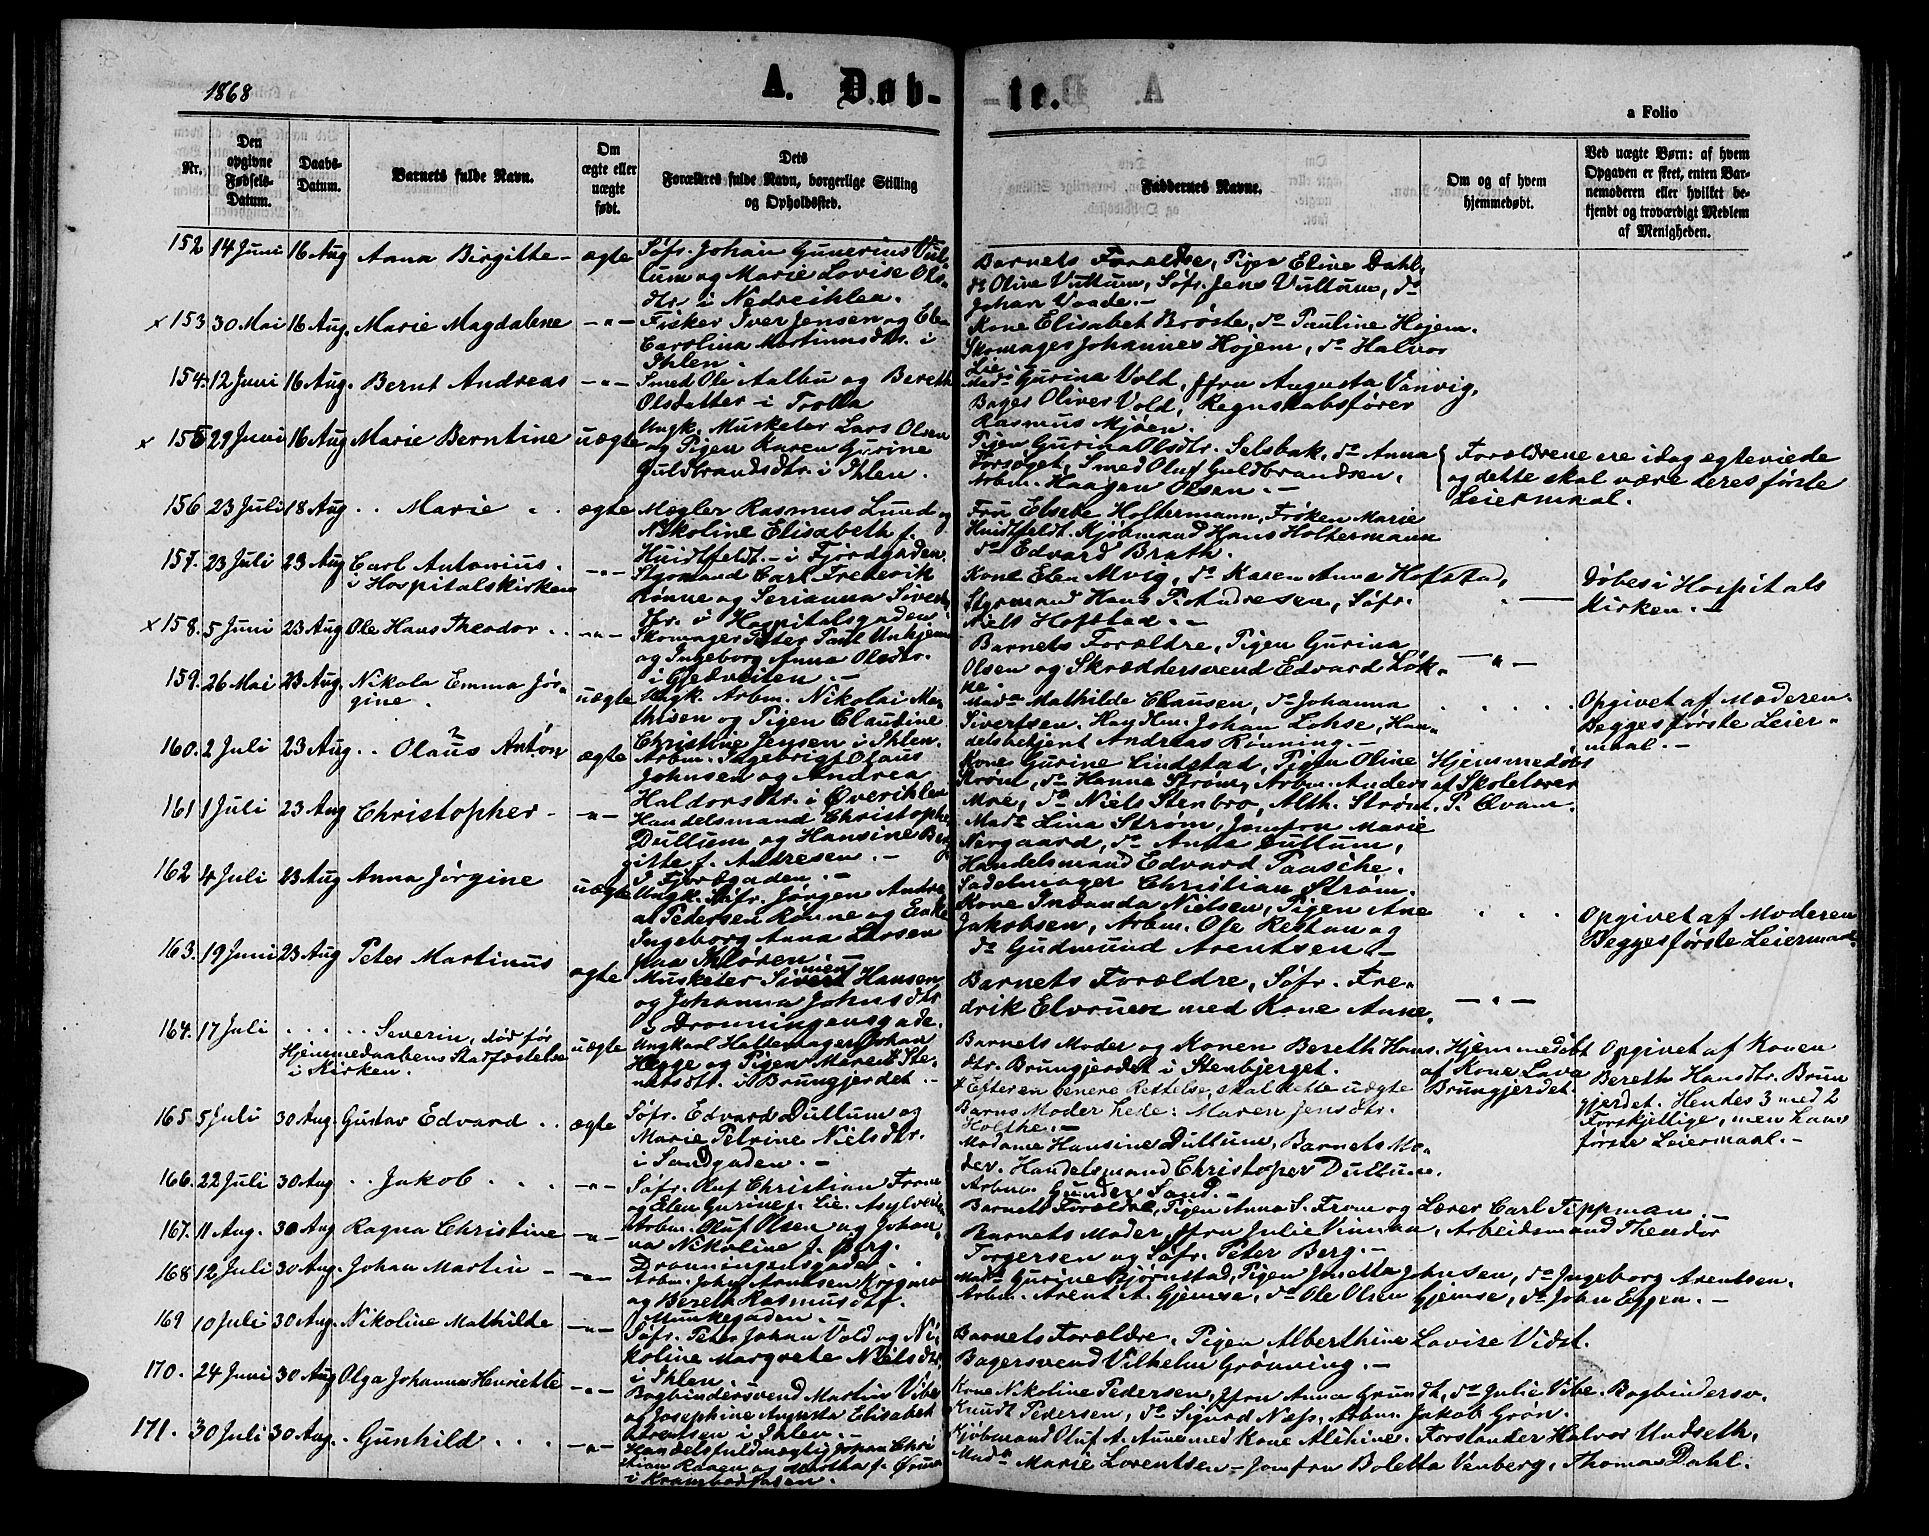 1868
A. Døb-
te.
a Folio
Nr.
Den opgivne Fødsels-Datum.
Daabs-Datum.
Barnets fulde Navn.
Om ægte eller uægte født.
Dets Forældres fulde Navn, borgerlige Stilling og Opholdssted.
Faddernes Navne.
Om og af hvem hjemmedøbt.
Ved uægte Børn: af hvem Opgaven er skeet, enten Barnemoderen eller hvilket bekjendt og troværdigt Medlem af Menigheden.
152 14 Juni 16 Aug Anna Birgitte - ægte
Søfr. Johan Gunerius Vul-
lum og Marie Lovise Ols-
dtr. i Nedreihlen.
Barnets Forældre, Pigen Eline Dahl,
do Oline Vullum, Søfr. Jens Vullum, do
Johan Vaade. -
x 153 30 Mai 16 Aug. Marie Magdalene -"-
Fisker Iver Jensen og El-
Carolina Martinusdtr. i
Ihlen.
Kone Elisabet Brøste, do Pauline Højem.
Skomager Johannes Højem, do Halvor
Lie
154. 12 Juni 16 Aug. Bernt Andreas -"-
Smed Ole Aalbu og Bereth
Olsdatter i Trolla
Mad. Gurina Vold, Jfru Augusta Vanvig,
Bager Oliver Vold, Regnskabsfører
Rasmus Mjøen.
x 155 29 Juni 16 Aug Marie Berntine uægte
Ungk. Musketer Lars Olsen
og Pigen Karen Gurine
Guldbrandsdtr. i Ihlen.
Pigen Gurina Olsdtr. Selsbak, do Anna
Forsøget, Smed Oluf Guldbrandsen,
Arbm. Haagen Olsen. -
Forældrene ere idag egteviede
og dette skal være deres første
Leiermaal.
156 23 Juli 18 Aug . . Marie . . ægte
Mægler Rasmus Lund og
Nikoline Elisabeth f.
Huidtfeldt. - i Fjordgaden.
Fru Elsebe Holtermann, Frøken Marie
Huidtfeldt. Kjøbmand Hans Holtermann
do Edvard Brath.
157. 23 Juli 23 Aug Carl Antonius.
i Hospitalskirken -"-
Styrmand Carl Frederik
Rønne og Serianna Siverts
dtr. i Hospitalsgaden
Kone Elen Mvig, do Karen Anna Hofstad,
Styrmand Hans P. Andresen, Søfr.
Niels Hofstad. -
Døbes i Hospitals
Kirken. -
x 158. 5 Juni 23 Aug Ole Hans Theodor . . -"-
Skomager Peter Paul Unkjem
og Ingeborg Anna Olsdtr.
i Gjedveiten. -
Barnets Forældre, Pigen Gurina
Olsen og Skræddersvend Edvard Løk-
ke.
159. 26 Mai 23 Aug. Nikola Emma Jør-
gine. uægte
Ungk. Arbm. Nikolai Ma-
thisen og Pigen Claudine
Christine Jensen i Ihlen.
Mada Mathilde Clausen, do Johanna
Sivertsen. Handlm. Johan Lohse, Han-
delsbetjent Andreas Rønning. -
Opgivet af Moderen.
Begges første Leier-
maal. -
160. 2 Juli 23 Aug . . Olaus Anton ægte
Arbm. Ingebrigt Olaus
Johnsen og Andrea
Haldorsdtr. i Øverihlen
Kone Gurine Lindstad, Pigen Oline
Strøm, do Hanna Strøm, Arbm. Anders
Moe, do Niels Stenbro, Alth. Strøm.
Hjemmedøbt
af Skolelærer
P. Qvam.
161 1 Juli 23 Aug Christopher - -"-
Handelsmand Christopher
Dullum og Hansine Bir
gitte f. Andresen. -
I Fjordgaden. -
Mada Lina Strøm, Jomfru Marie
Nergaard, do Anna Dullum,
Handelsmand Edvard Paasche.
Sadelmager Christian Strøm.
162 4 Juli 23 Aug Anna Jørgine uægte
Ungk. Søfr. Jørgen Andre
as Pedersen Rønne og Enke
Ingeborg Anna Larsen
paa Ihløren. -
Kone Indanda Nielsen, Pigen Ane
Jakobsen, Arbm. Ole Restan og
do Gudmund Arentsen. -
Opgivet af Moderen
Begges første Leiermaal.
163. 19 Juni 23 Aug Peter Martinus ægte
Musketer Sivert Hansen
og Johanna Johnsdtr
i Dronningensgade.
Barnets Forældre, Søfr. Fre-
drik Elvruen med Kone Anne.
164. 17 Juli . . . . . Severin, død før
Hjemmedaabens Stadfæstelse
i Kirken. uægte
Ungkarl Hattemager Johan
Hegge og Pigen Maren Ste-
netsdtr. i Brungjerdet. -
Barnets Moder og Konen Bereth Hans-
dtr. Brungjerdet i Stenbjerget.
x Efter en senere Rettelse, skal dette uægte
Barns Moder hede: Maren Jensdtr.
Holthe. -
Hjemmedøbt
af Kone Lava
Brungjerdet.
Opgivet af Konen
Bereth Hansdtr. Brun
gjerdet. Hendes 3 med 2
Forskjellige, men hans
første Leiermaal. -
165 5 Juli 30 Aug. Gustav Edvard . . ægte
Søfr. Edvard Dullum og
Marie Petrine Nielsdtr.
i Sandgaden. -
Madame Hansine Dullum, Barnets Mo-
der. Handelsmand Christoper Dullum.
Arbm. Gunder Sand. -
166. 22 Juli 30 Aug . . Jakob . . . -"-
Søfr. Oluf Christian From
og Elen Gurine f. Lie. Asylveiten
Barnets Forældre, Pigen Anna S. From og Lærer Carl Tippman. -
167. 11 Aug. 30 Aug Ragna Christine -"-
Arbm. Oluf Olsen og Johan
na Nikoline f. Berg.
Dronningensgade. .
Barnets Moder, Jfru Julie Vinman, Arbeidsmand Theodor
Torgersen og Søfr. Peter Berg. -
168 12 Juli 30 Aug. Johan Martin - -"-
Arbm. John Arntsen Krogmo
og Bereth Rasmusdtr.
i Munkegaden. -
Mad. Gurine Bjørnstad, Pigen Josetta Johnsen, do Ingeborg Arentsen.
Arbm. Arent A. Gjemse, do Ole Olsen Gjemse, do John Eggen. -
169 10 Juli 30 Aug. Nikoline Mathilde -"-
Søfr. Peter Johan Vold og Ni-
koline Margrete Nielsdtr.
i Ihlen.
Barnets Forældre. Pigen Alberthine Lovise Vidst.
Bagersvend Vilhelm Grønning. -
170. 24 Juni 30 Aug Olga Johanna Henriette -"-
Bogbindersvend Martin Vibe
og Josephine Augusta Elisabet
Lorentsen i Ihlen. -
Kone Nikoline Pedersen, Jfru Anna Grundt, do Julie Vibe. Bogbindersv.
Knudt Pedersen, do Sigvard Næss, Arbm. Jakob Grøn.
171. 30 Juli 30 Aug. . Gunhild . . . -"-
Handelsfuldmægtig Johan Chri
stian Raaen og Martha f. Ørum
i Krambodgaden.
Kjøbmand Oluf A. Aune med Kone Alihine. Forstander Halvor Undseth,
Mada Marie Lorentsen - Jomfru Boletta Venberg, Thomas Dahl.